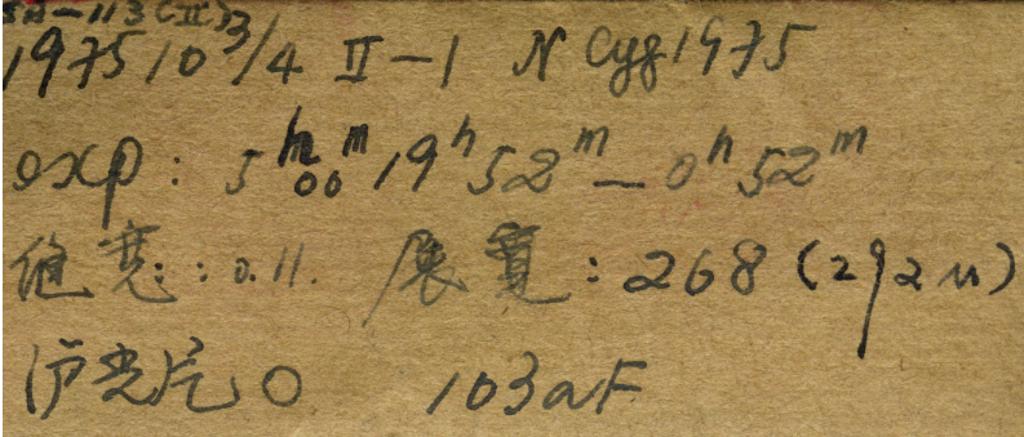 SA-113(II)
1975 10 3/4 II-1 N Cyg 1975
exp: 5ʰ00ᵐ 19ʰ52ᵐ—0ʰ52ᵐ
缝宽: 0.11. 展寬: 268 (292μ)
沪光片 0 103aF